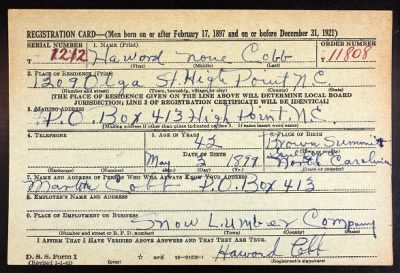 REGISTRATION CARD—(Men born on or after February 17, 1897 and on or before December 31, 1921)
SERIAL NUMBER 1. NAME (Print) ORDER NUMBER
1212 Haword none Cobb 11808
(First) (Middle) (Last)
2. PLACE OF RESIDENCE (Print)
1203 Olga St. High Point N.C.
(Number and street) (Town, township, village, or city) (County) (State)
[THE PLACE OF RESIDENCE GIVEN ON THE LINE ABOVE WILL DETERMINE LOCAL BOARD
JURISDICTION; LINE 2 OF REGISTRATION CERTIFICATE WILL BE IDENTICAL]
3. MAILING ADDRESS
P.O. Box 413 High Point N.C.
(Mailing address if other than place indicated on line 2. If same insert word same)
4. TELEPHONE 5. AGE IN YEARS 6. PLACE OF BIRTH
42 Brown Summit
DATE OF BIRTH (Town or county)
May 2 1899 North Carolina
(Exchange) (Number) (Mo.) (Day) (Yr.) (State or country)
7. NAME AND ADDRESS OF PERSON WHO WILL ALWAYS KNOW YOUR ADDRESS
Cobb P.O. Box 413
8. EMPLOYER'S NAME AND ADDRESS
Snow Lumber Company
9. PLACE OF EMPLOYMENT OR BUSINESS
(Number and street or R. F. D. number) (Town) (County) (State)
I AFFIRM THAT I HAVE VERIFIED ABOVE ANSWERS AND THAT THEY ARE TRUE.
D. S. S. Form 1 Haword Cobb
(Revised 1-1-42) (Registrant's signature)